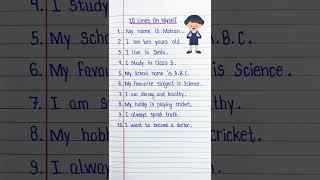 10 Lines On Myself
1. My name is Mohan.
2. I am ten years old.
3. I live in Delhi.
4. I study in Class 5.
5. My School name is A.B.C.
6. My Favourite subject is Science.
7. I am strong and healthy.
8. My hobby is playing cricket.
9. I always speak truth.
10. I want to become a doctor.
4. I study
5. My School
6. My Favou
7. I am
8. My hobb
9. I always
A.B.C.
is Science.
cricket.